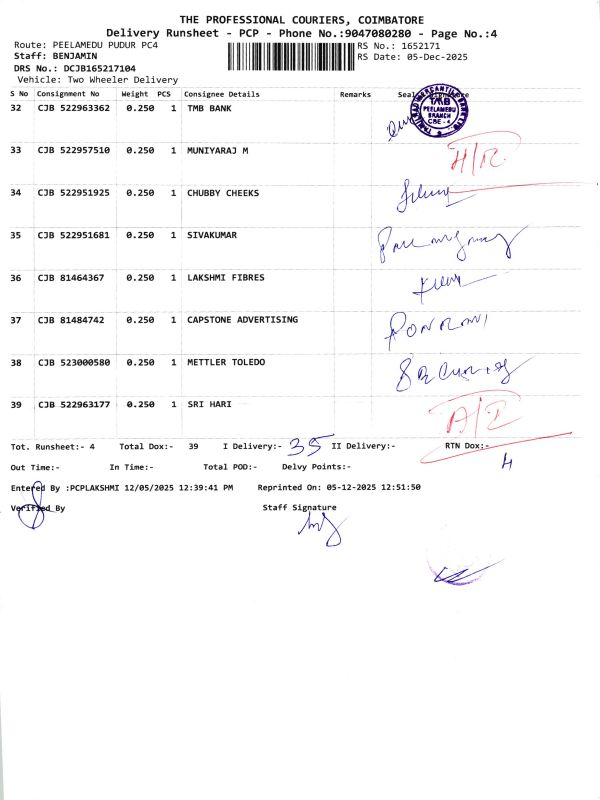 THE PROFESSIONAL COURIERS, COIMBATORE
Delivery Runsheet - PCP - Phone No.:9047080280 - Page No.:4
Route: PEELAMEDU PUDUR PC4
RS No.: 1652171
Staff: BENJAMIN
RS Date: 05-Dec-2025
DRS No.: DCJB165217104
Vehicle: Two Wheeler Delivery
S No Consignment No Weight PCS Consignee Details Remarks Seal
32 CJB 522963362 0.250 1 TMB BANK
TMB
PEELAMEDU
BRANCH
CBE - 4
33 CJB 522957510 0.250 1 MUNIYARAJ M H/R.
34 CJB 522951925 0.250 1 CHUBBY CHEEKS
35 CJB 522951681 0.250 1 SIVAKUMAR
36 CJB 81464367 0.250 1 LAKSHMI FIBRES
37 CJB 81484742 0.250 1 CAPSTONE ADVERTISING
38 CJB 523000580 0.250 1 METTLER TOLEDO
39 CJB 522963177 0.250 1 SRI HARI A/I
Tot. Runsheet:- 4 Total Dox:- 39 I Delivery:- 35 II Delivery:- RTN Dox:- 4
Out Time:- In Time:- Total POD:- Delvy Points:-
Entered By :PCPLAKSHMI 12/05/2025 12:39:41 PM Reprinted On: 05-12-2025 12:51:50
Verified By Staff Signature